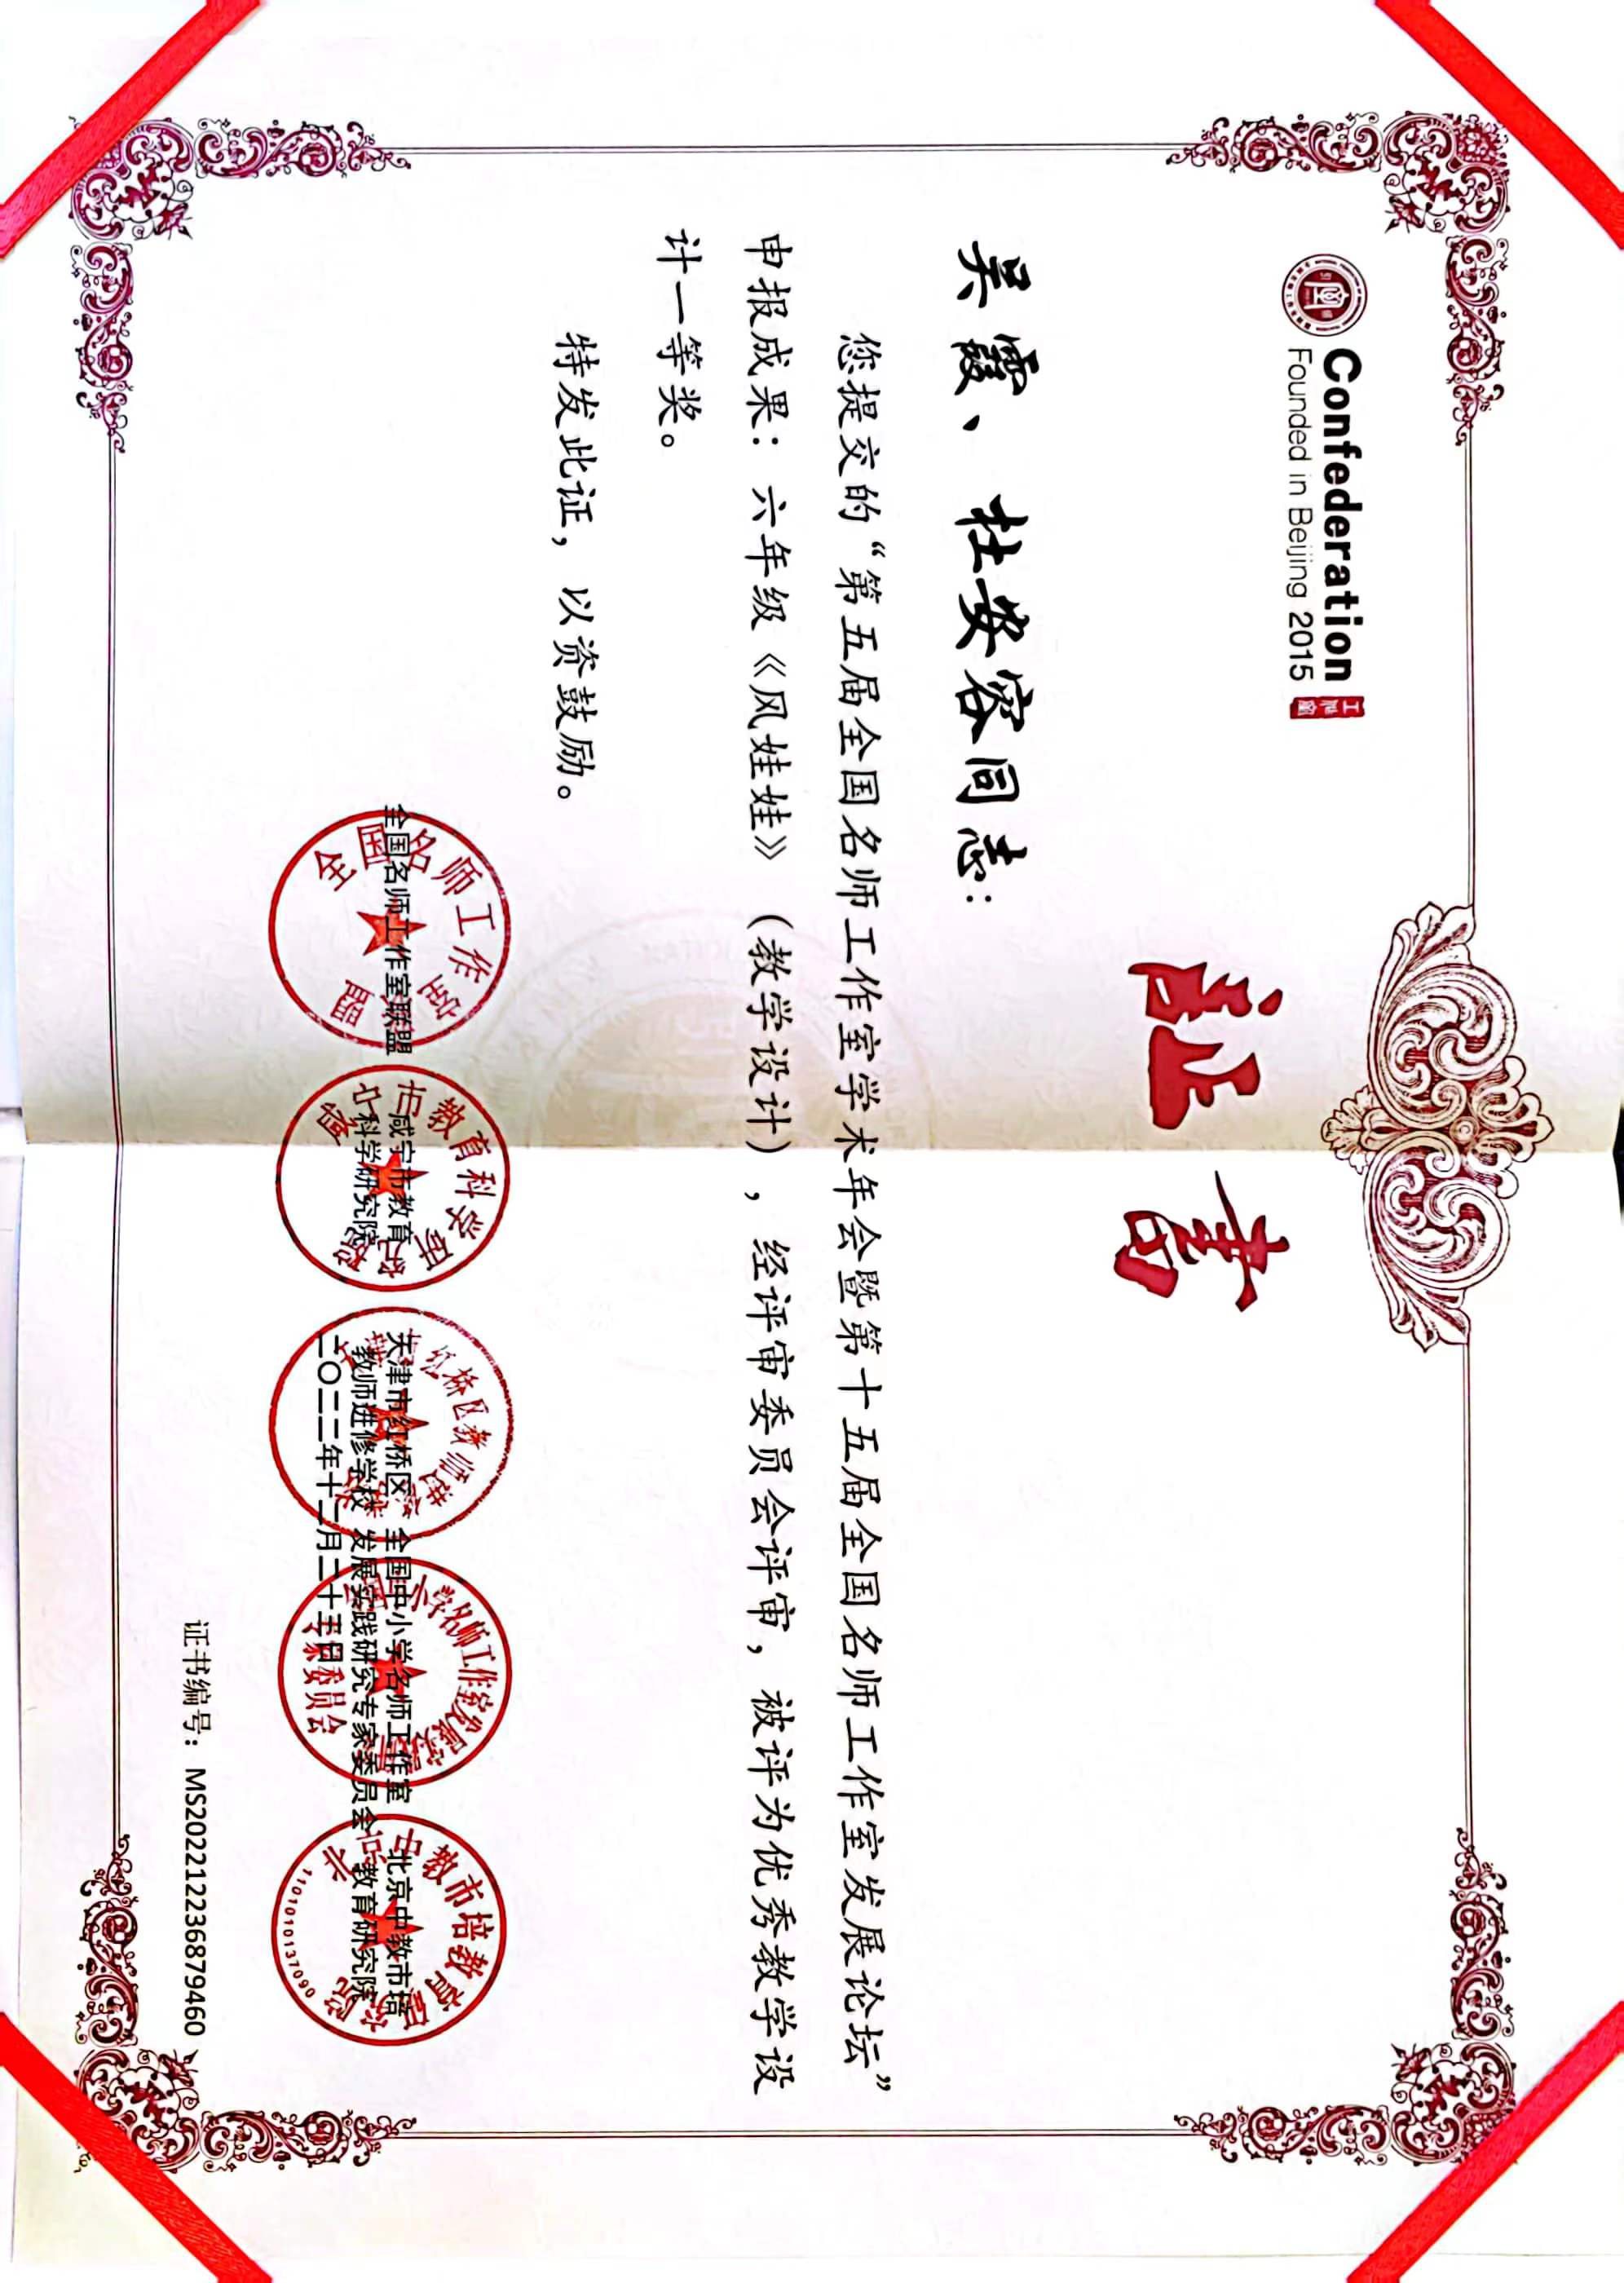 Confederation
Founded in Beijing 2015
证书
吴霞、杜安容同志：
您提交的“第五届全国名师工作室学术年会暨第十五届全国名师工作室发展论坛”
申报成果：六年级《风娃娃》（教学设计），经评审委员会评审，被评为优秀教学设
计一等奖。
特发此证，以资鼓励。
全国名师工作室联盟
咸宁市教育
科学研究院
天津市红桥区
教师进修学校
全国中小学名师工作室
发展实践研究专家委员会
北京中教市培
教育研究院
二〇二二年十二月二十五日
1101010137090
证书编号：MS20221223687​9460